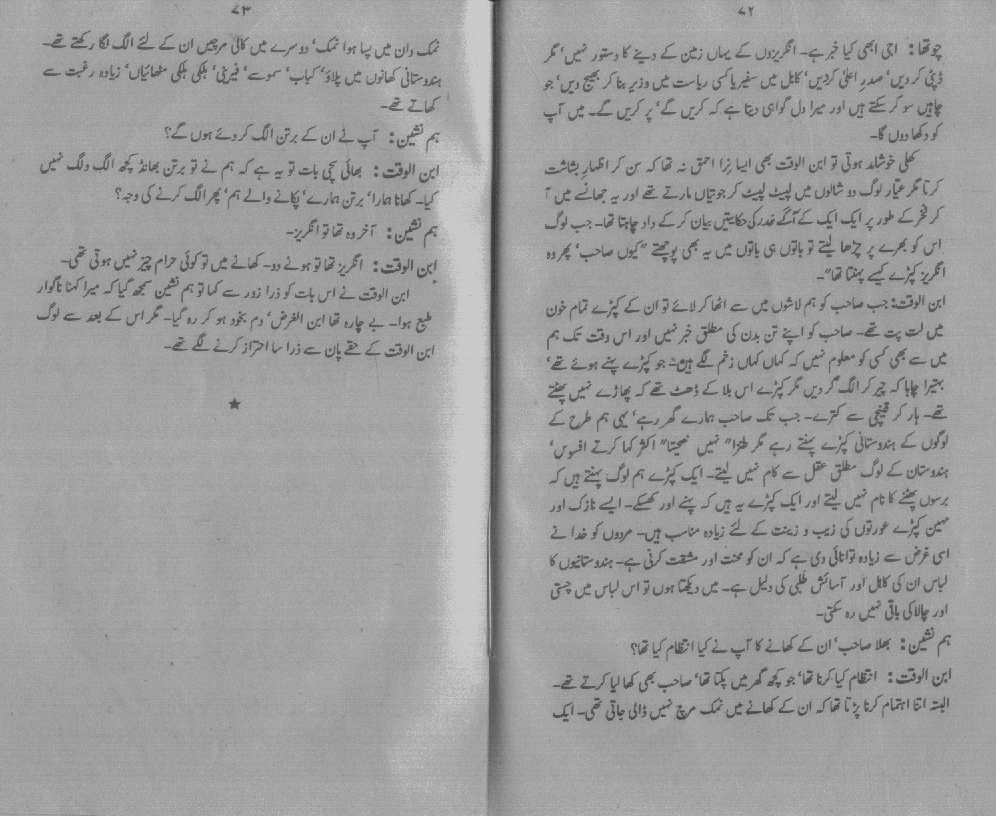 ۷۲
چوتھا : اجی ابھی کیا خبر ہے۔ انگریزوں کے یہاں زمین کے دینے کا دستور نہیں‘ مگر
ڈپٹی کر دیں‘ صدر اعلیٰ کر دیں‘ کابل میں سفیر یا کسی ریاست میں وزیر بنا کر بھیج دیں‘ جو
چاہیں سو کر سکتے ہیں اور میرا دل گواہی دیتا ہے کہ کریں گے‘ پر کریں گے۔ میں آپ
کو دکھا دوں گا۔
کھلی خوشامد ہوتی تو ابن الوقت بھی ایسا نرا احمق نہ تھا کہ سن کر اظہار بشاشت
کرتا مگر عیّار لوگ دو شالوں میں لپیٹ لپیٹ کر جوتیاں مارتے تھے اور یہ جھانسے میں آ
کر فخر کے طور پر ایک ایک کے آگے غدر کی حکایتیں بیان کر کے داد چاہتا تھا۔ جب لوگ
اس کو بھرے پر چڑھا لیتے تو باتوں ہی باتوں میں یہ بھی پوچھتے ”کیوں صاحب‘ پھر وہ
انگریز کپڑے کیسے پہنتا تھا“۔
ابن الوقت: جب صاحب کو ہم لاشوں میں سے اٹھا کر لائے تو ان کے کپڑے تمام خون
میں لت پت تھے۔ صاحب کو اپنے تن بدن کی مطلق خبر نہیں اور اس وقت تک ہم
میں سے بھی کسی کو معلوم نہیں کہ کہاں کہاں زخم لگے ہیں۔ جو کپڑے پہنے ہوئے تھے‘
بہتیرا چاہا کہ چیر کر الگ کر دیں مگر کپڑے اس بلا کے ڈھٹ تھے کہ پھاڑے نہیں پھٹتے
تھے۔ ہار کر قینچی سے کترے۔ جب تک صاحب ہمارے گھر رہے‘ یہی ہم طرح کے
لوگوں کے ہندوستانی کپڑے پہنتے رہے مگر طنزا“ نہیں نصیحتا“ اکثر کہا کرتے افسوس‘
ہندوستان کے لوگ مطلق عقل سے کام نہیں لیتے۔ ایک کپڑے ہم لوگ پہنتے ہیں کہ
برسوں پھٹنے کا نام نہیں لیتے اور ایک کپڑے یہ ہیں کہ پہنے اور کھسکے۔ ایسے نازک اور
مہین کپڑے عورتوں کی زیب و زینت کے لئے زیادہ مناسب ہیں۔ مردوں کو خدا نے
اسی غرض سے زیادہ توانائی دی ہے کہ ان کو محنت اور مشقت کرنی ہے۔ ہندوستانیوں کا
لباس ان کی کاہلی اور آسائش طلبی کی دلیل ہے۔ میں دیکھتا ہوں تو اس لباس میں چستی
اور چالاکی باقی نہیں رہ سکتی۔
ہم نشین : بھلا صاحب‘ ان کے کھانے کا آپ نے کیا انتظام کیا تھا؟
ابن الوقت : انتظام کیا کرنا تھا‘ جو کچھ گھر میں پکتا تھا‘ صاحب بھی کھا لیا کرتے تھے۔
البتہ اتنا اہتمام کرنا پڑتا تھا کہ ان کے کھانے میں نمک مرچ نہیں ڈالی جاتی تھی۔ ایک
۷۳
نمک دان میں پسا ہوا نمک‘ دوسرے میں کالی مرچیں ان کے لئے الگ لگا رکھتے تھے۔
ہندوستانی کھانوں میں پلاؤ‘ کباب‘ سموسے‘ فیرنی‘ ہلکی ہلکی مٹھائیاں‘ زیادہ رغبت سے
کھاتے تھے۔
ہم نشین : آپ نے ان کے برتن الگ کر دئے ہوں گے؟
ابن الوقت : بھائی سچی بات تو یہ ہے کہ ہم نے تو برتن بھانڈ کچھ الگ ولگ نہیں
کیا۔ کھانا ہمارا‘ برتن ہمارے‘ پکانے والے ہم‘ پھر الگ کرنے کی وجہ؟
ہم نشین : آخر وہ تھا تو انگریز۔
ابن الوقت : انگریز تھا تو ہونے دو۔ کھانے میں تو کوئی حرام چیز نہیں ہوتی تھی۔
ابن الوقت نے اس بات کو ذرا زور سے کہا تو ہم نشین سمجھ گیا کہ میرا کہنا ناگوار
طبع ہوا۔ بے چارہ تھا ابن الغرض‘ دم بخود ہو کر رہ گیا۔ مگر اس کے بعد سے لوگ
ابن الوقت کے حقے پان سے ذرا سا احتراز کرنے لگے تھے۔
★